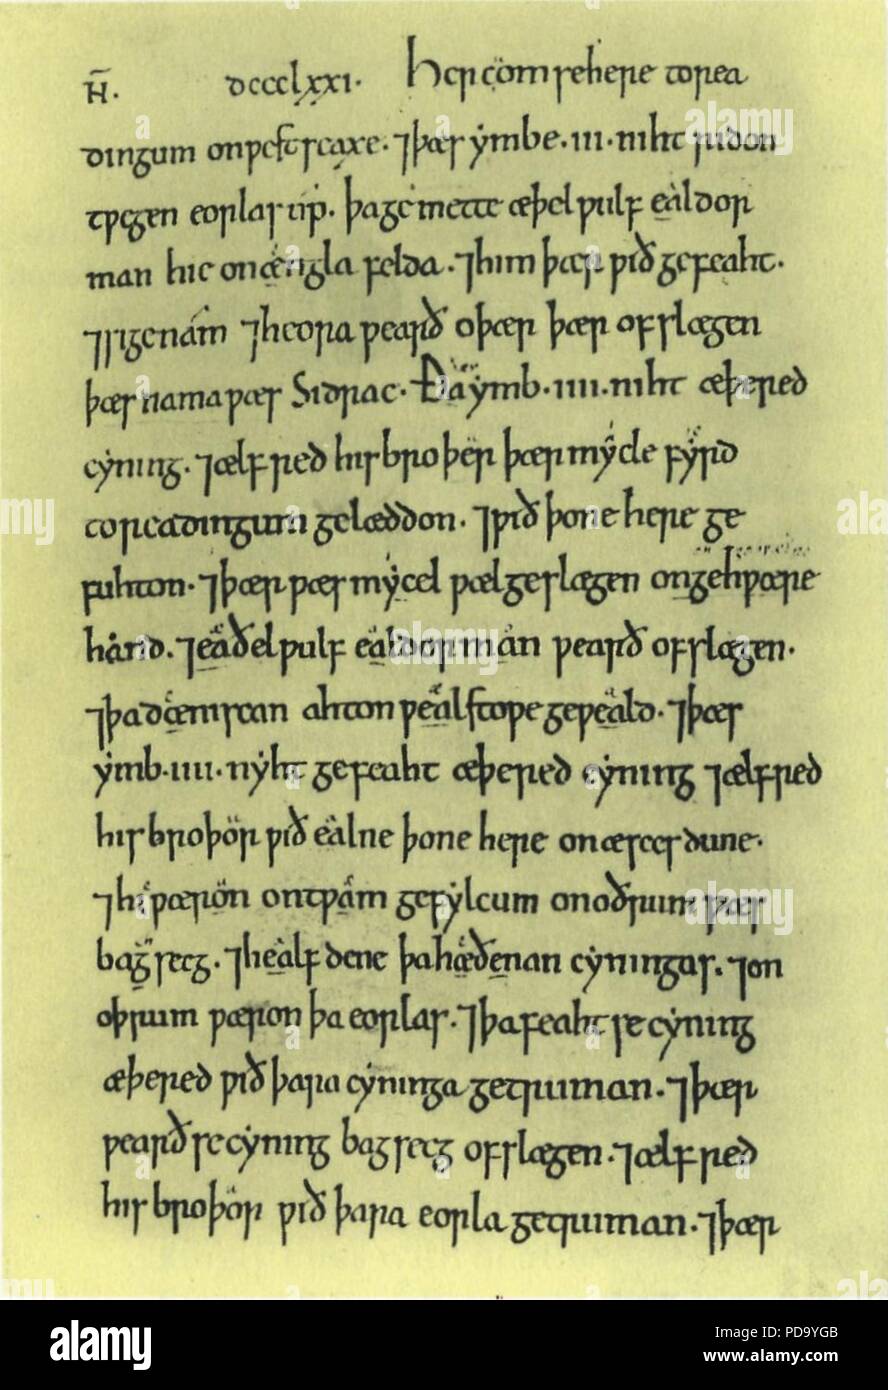 AN̄. DCCCLXXI. Her cōm se here to rea
dingum on ƿestseaxe. ⁊ þæs ẏmbe .III. niht ridon
tƿegen eorlas úp. þa gemette æþelƿulf ealdor
man hie on ængla felda. ⁊ him þær ƿið gefeaht.
⁊ sige nám ⁊ heora ƿearð oþær þær ofslægen
þæs nama ƿæs Sidrac. Ða ẏmb .IIII. niht æþered
cẏning. ⁊ ælfred his broþer þær mẏcle fẏrd
to readingum gelæddon. ⁊ ƿið þone here ge
fuhton. ⁊ þær ƿæs mẏcel ƿæl geslægen on gehƿæþre
hand. ⁊ eaðelƿulf ealdorman ƿearð ofslægen.
⁊ þa dæniscan ahton ƿealstoƿe geƿeald. ⁊ þæs
ẏmb .IIII. nẏht gefeaht æþered cẏning ⁊ ælfred
his broþor ƿið ealne þone here on æscesdune.
⁊ hi ƿæron on tƿam gefẏlcum on oðrum ƿæs
bagsecg. ⁊ healfdene þa hæðenan cẏningas. ⁊ on
oþrum ƿæron þa eorlas. ⁊ þa feaht se cẏning
æþered ƿið þara cẏninga getruman. ⁊ þær
ƿearð se cẏning bagsecg ofslægen. ⁊ ælfred
his broþor ƿið þara eorla getruman. ⁊ þær
alamy
Image ID: PD9YGB
www.alamy.com